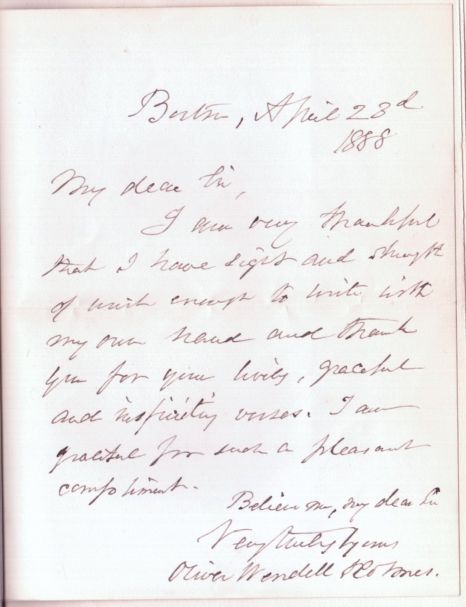 Boston, April 23d
1888
My dear Sir,
I am very thankful
that I have sight and strength
of wrist enough to write with
my own hand and thank
you for your lively, graceful
and inspiriting verses. I am
grateful for such a pleasant
compliment.
Believe me, my dear Sir
Very truly yours
Oliver Wendell Holmes.